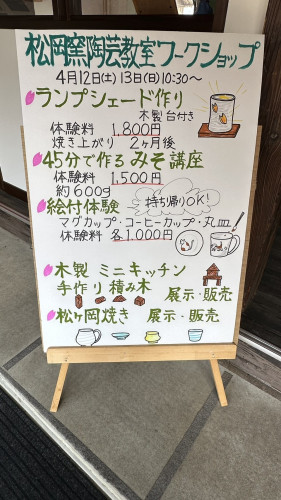 松岡窯陶芸教室ワークショップ
4月12日(土)13日(日)10:30〜
ランプシェード作り
木製台付き
体験料 1,800円
焼き上がり 2ヶ月後
45分で作るみそ講座
体験料 1,500円
約600g
絵付体験 持ち帰りOK!
マグカップ・コーヒーカップ・丸皿
体験料 各1,000円
木製 ミニキッチン
手作り積み木 展示・販売
松ヶ岡焼き 展示・販売